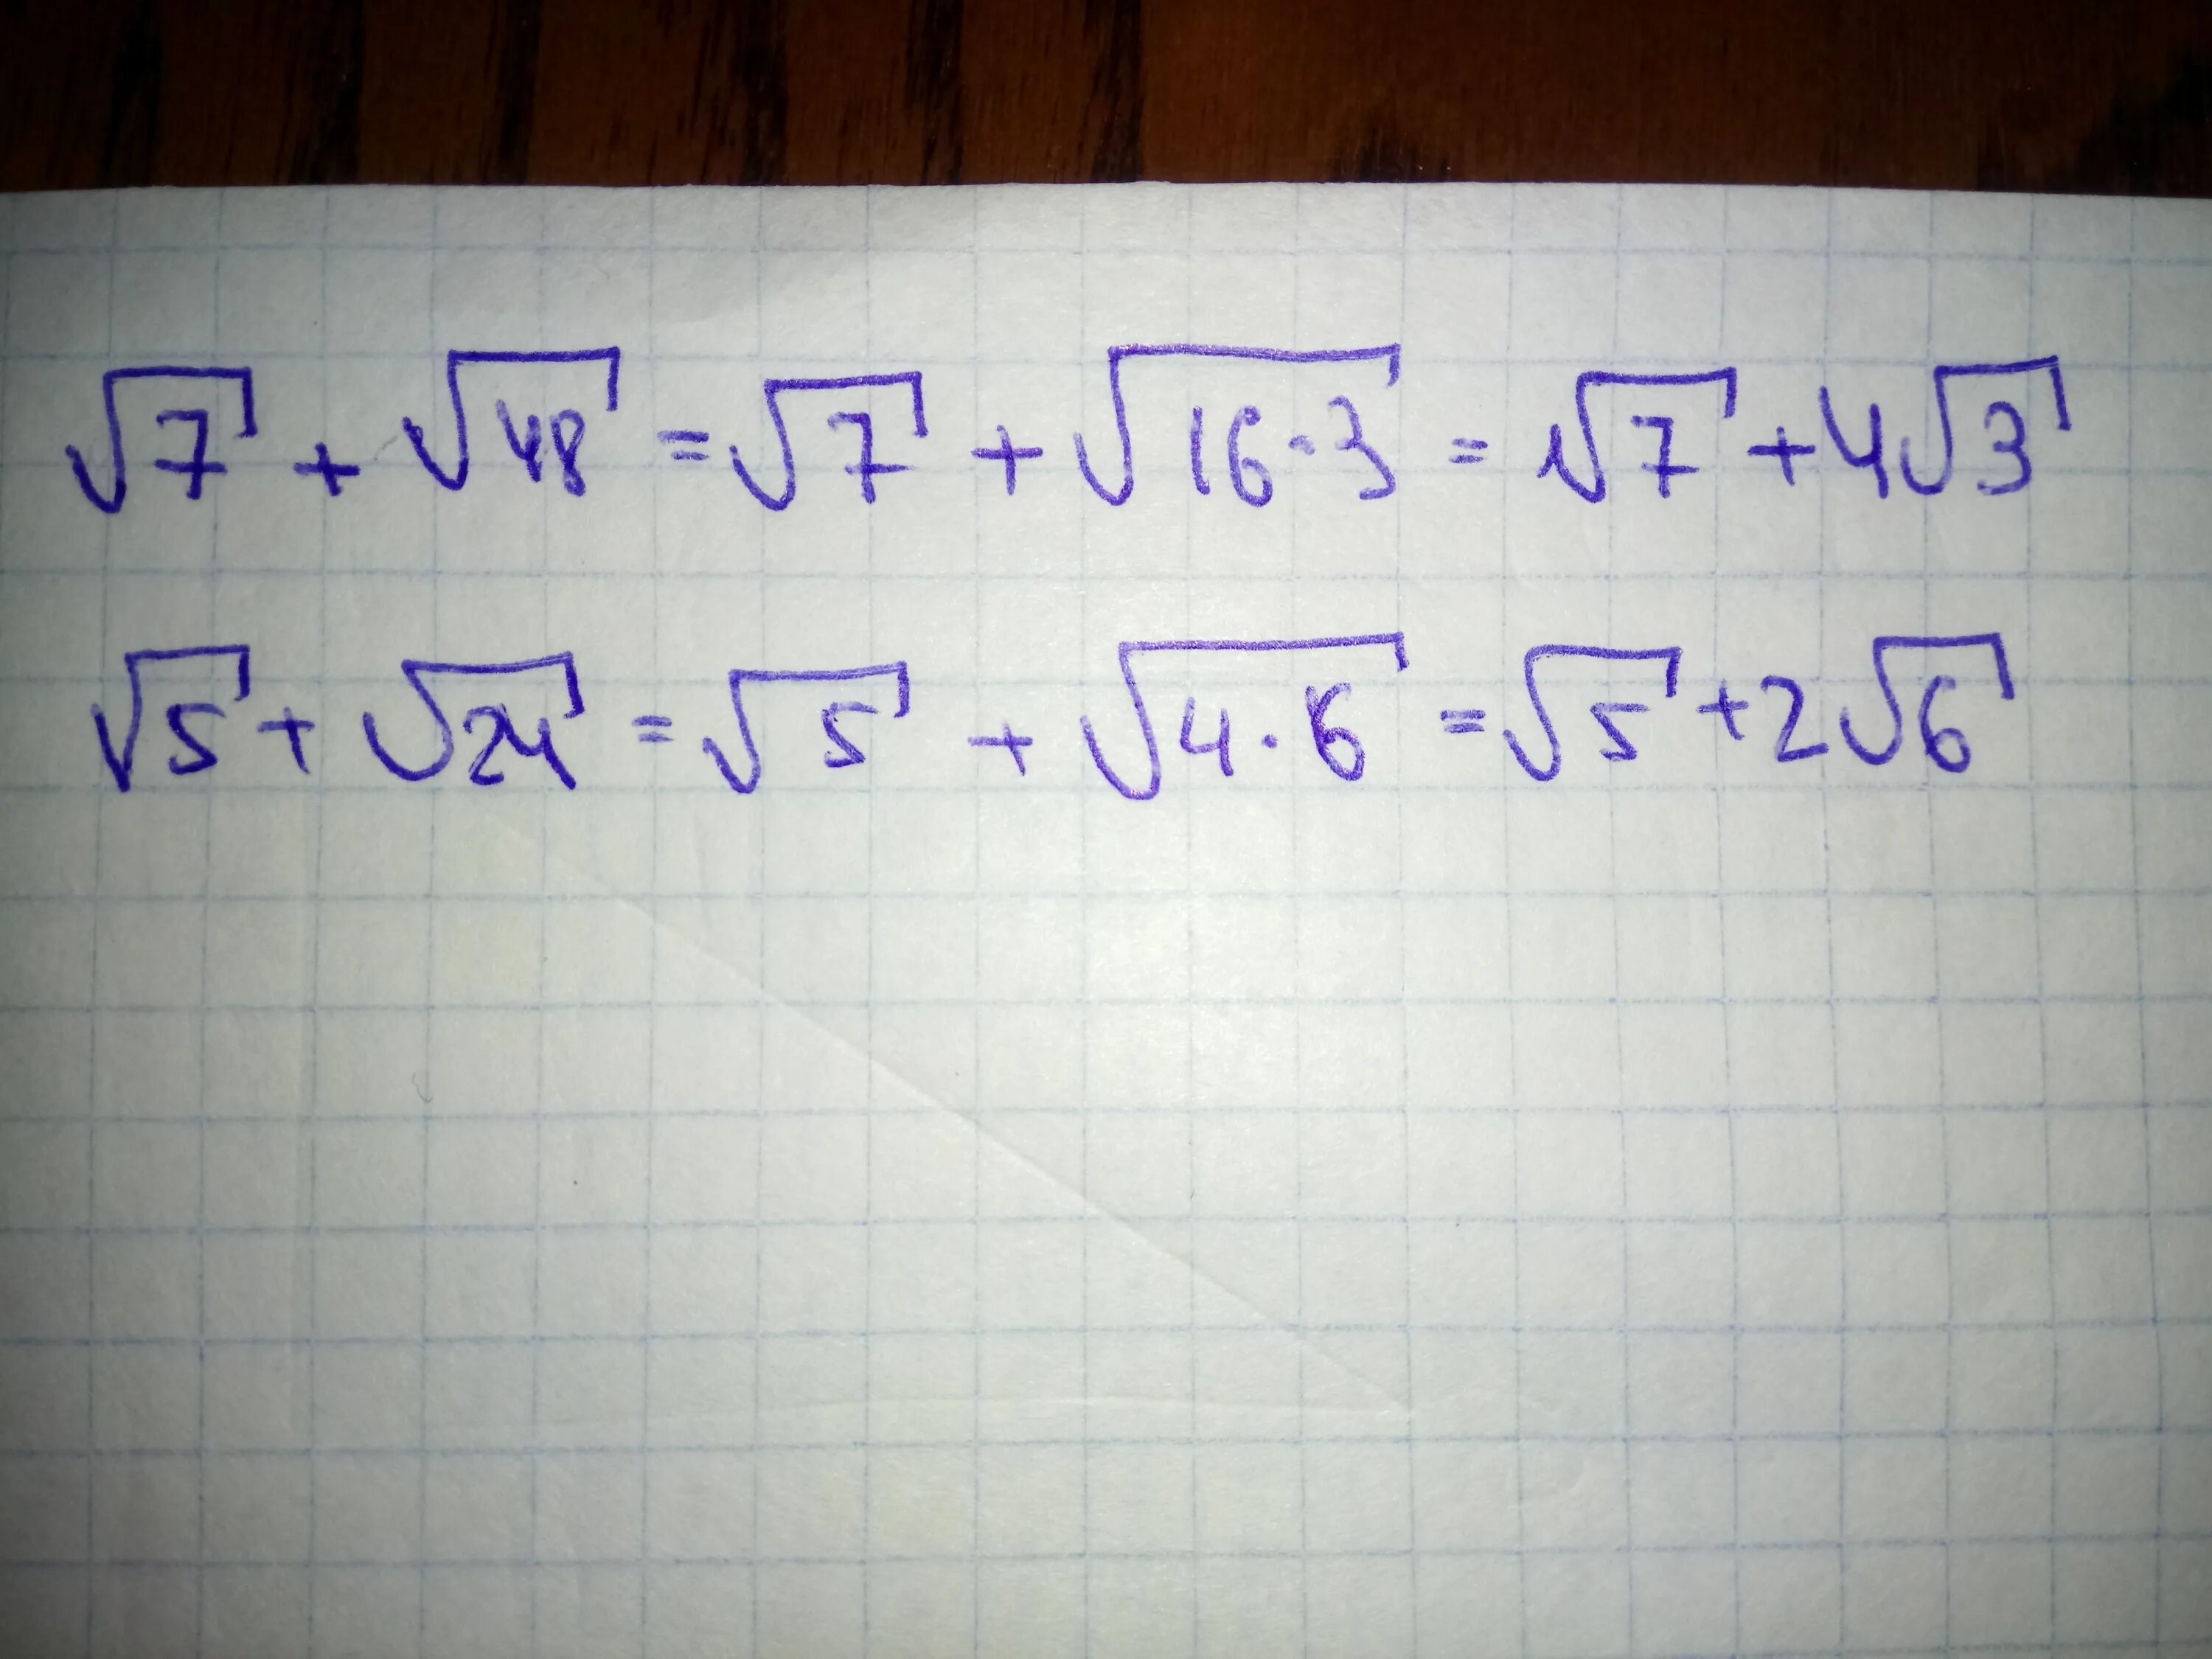 √7 + √48 = √7 + √16·3 = √7 + 4√3
√5 + √24 = √5 + √4·6 = √5 + 2√6